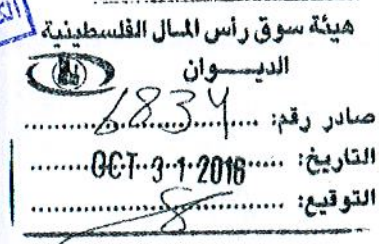 هيئة سوق رأس المال الفلسطينية
الديـــوان
صادر رقم: 6834
التاريخ: OCT 3 1 2016
التوقيع: